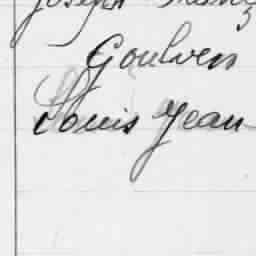 Joseph
Goulven
Louis Jean